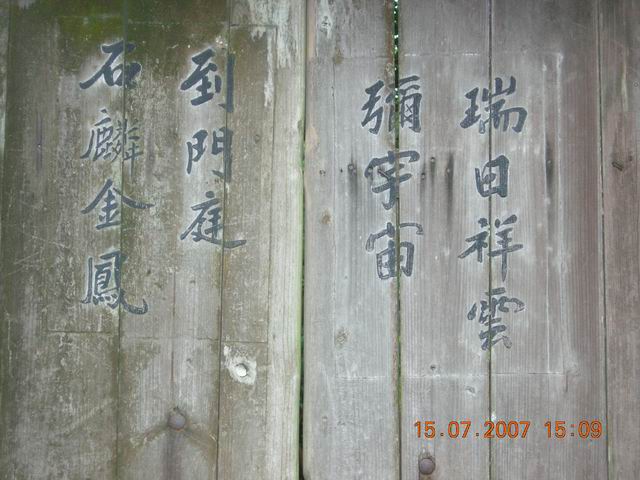 瑞田祥雲
彌宇宙
到門庭
石麟金鳳
15.07.2007 15:09